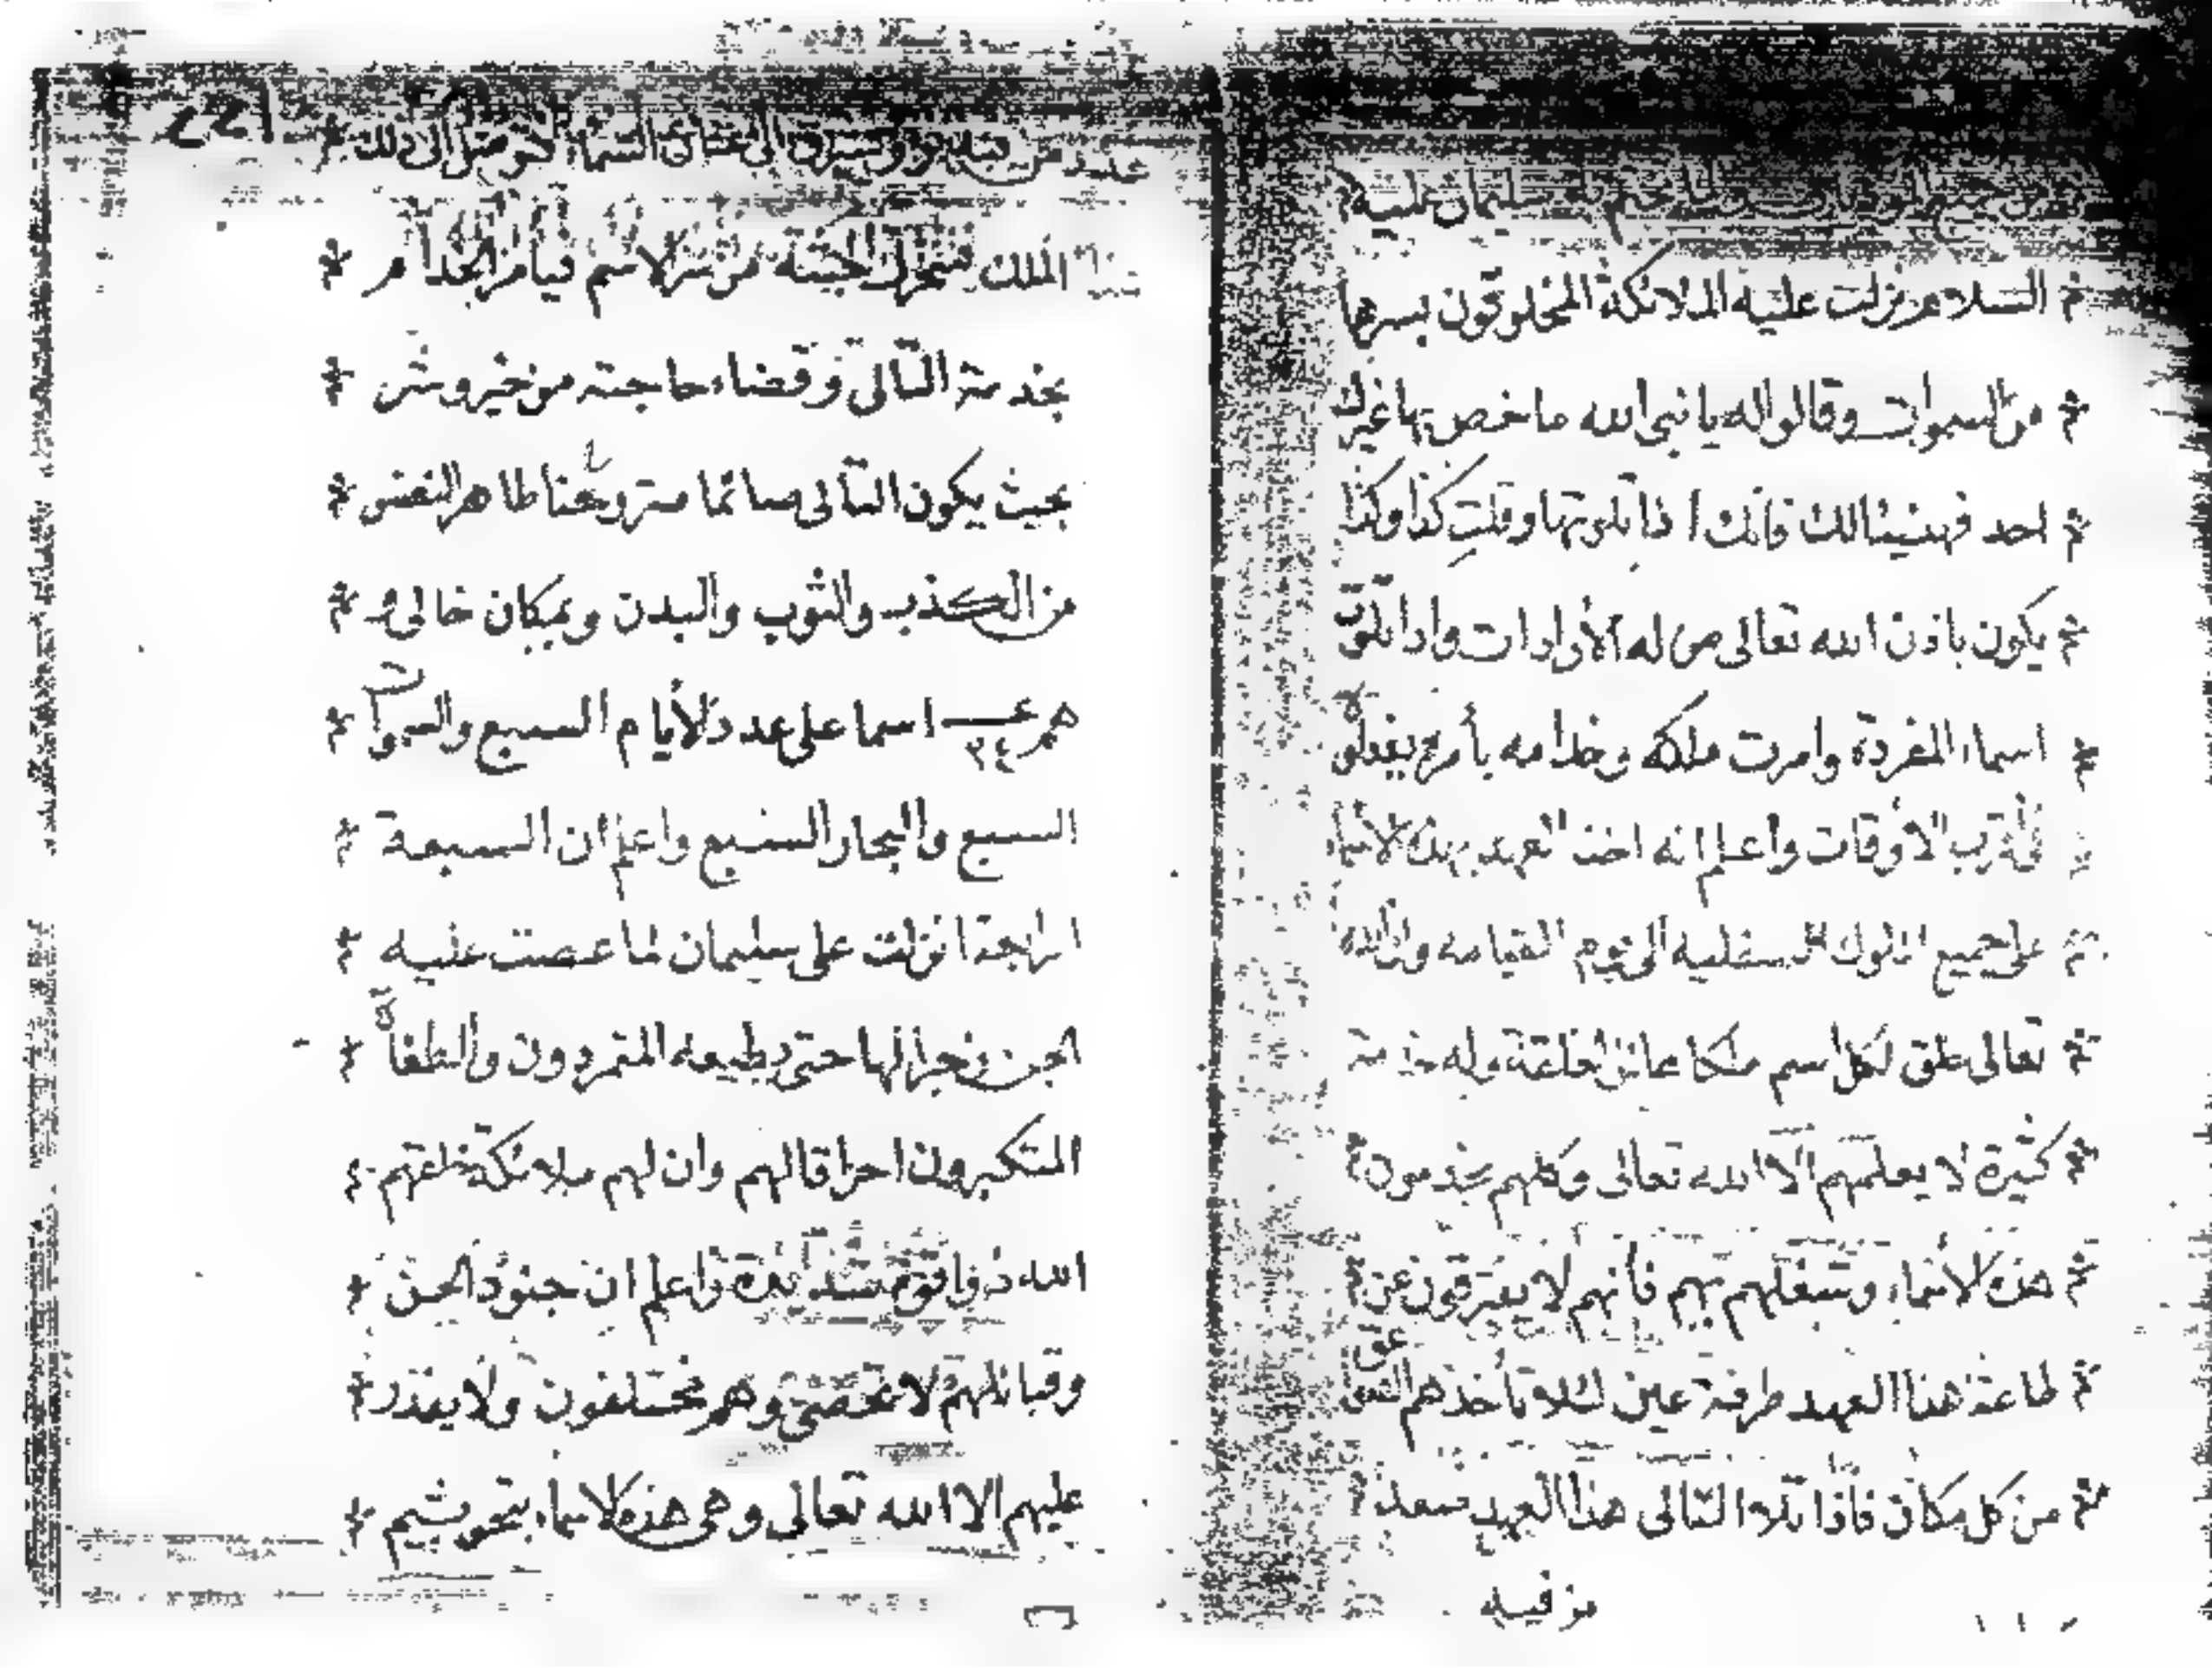 السلام نزلت عليه الملائكة المخلوقون بسرها
من السموات وقالوا له يا نبي الله ما خص بها غيرك
احد فهنيئا لك فانك اذا تلوتها وقلت كذا وكذا
يكون باذن الله تعالى من له الأرادات واذا تلوت
اسماء المفردة وامرت ملاكه وخدامه بأمر يفعلو
في أقرب الأوقات وأعلم انه اخذ العهد بهذه لاسما
على جميع الملوك السفليه الى يوم القيامه وان الله
تعالى خلق لكل اسم ملكا وله خدمة
كثيرة لا يعلمهم الا الله تعالى وكلهم يخدمون
هذه لاسماء وشغلهم بهم فأنهم لا يفترقون عن
طاعة هذا العهد طرفة عين لئلا تأخذهم
من كل مكان فاذا تلا التالى هذا العهد
من فيه
221
عدد من الى عنان السماء ذلك
الملك فتتحرك من سر لاسم فيأمر الخدام
بخدمة التالى وقضاء حاجته من خير وشر
بحيث يكون التالى صائما طاهر النفس
من الكذب والثوب والبدن وبمكان خالى و
هم ٢٤ اسما على عدد الأيام السبع والسموات
السبع والبحار السبع واعلم ان السبعة
انزلت على سليمان لما عصت عليه
الجن حتى تطيعه المتمردون والطغاة
المتكبرون احراقا لهم وان لهم ملائكة خلقهم
الله ذوا قوة شديدة واعلم ان جنود الجن
وقبائلهم لا تحصى وهم مختلفون ولا يقدر
عليهم الا الله تعالى وهى هذه لاسماء